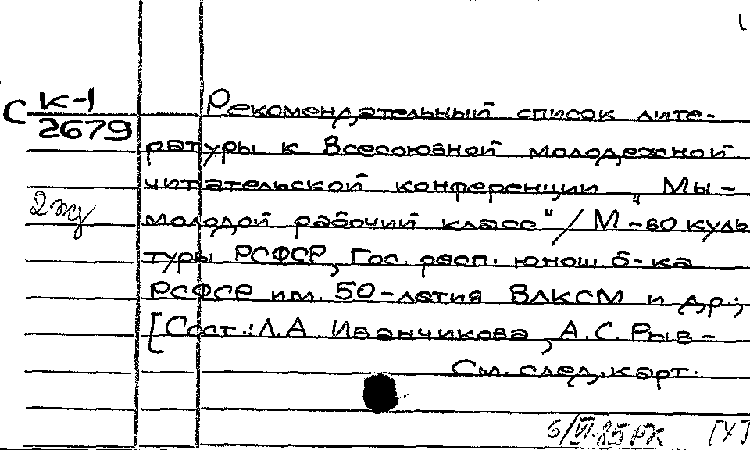 С К-1
2679
Рекомендательный список лите-
ратуры к Всесоюзной молодежной
читательской конференции „Мы -
2 экз
молодой рабочий класс"/М-во куль
туры РСФСР, Гос. респ. юнош. б-ка
РСФСР им. 50-летия ВЛКСМ и др.;
[Сост.: Л.А. Иванчикова, А.С. Рыв-
См. след. карт.
6/VI-85 РК [У]